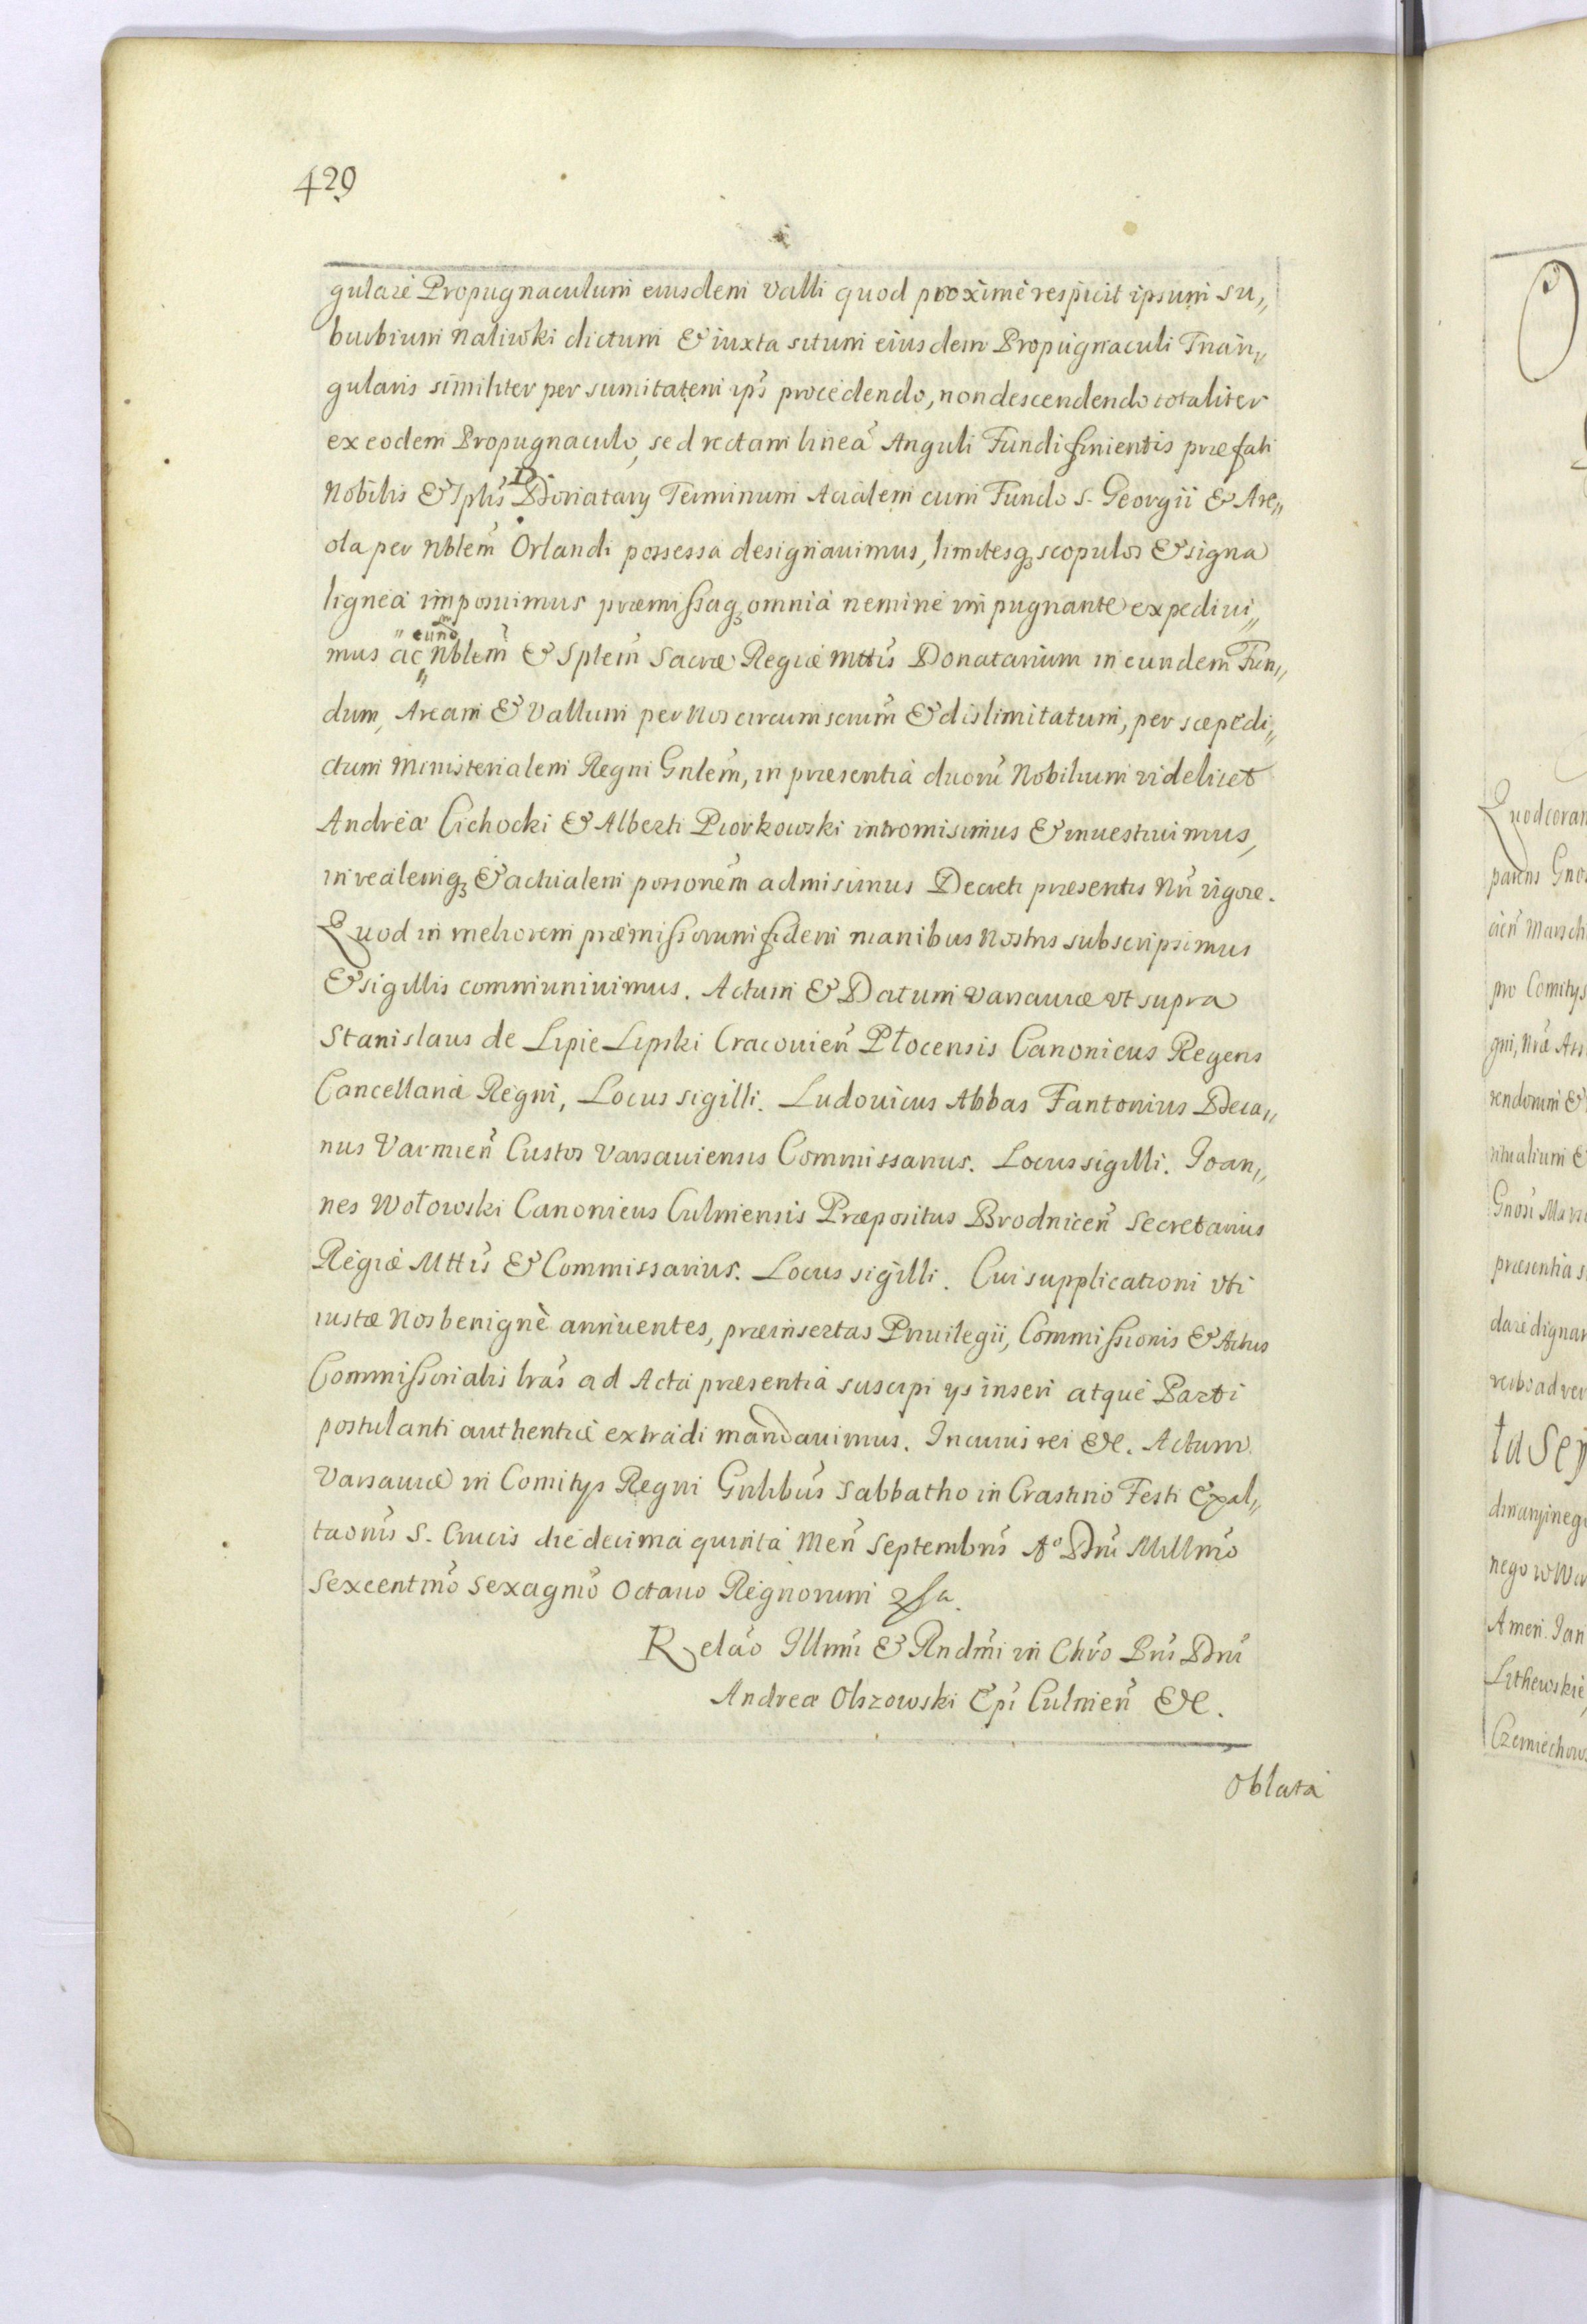 429
gulare Propugnaculum eiusdem Valli quod proximè respicit ipsum su„
burbium Naliwki dictum & iuxta situm eiusdem Propugnaculi Trian„
gularis similiter per sumitatem ips̃ procedendo, non descendendo totaliter
ex eodem Propugnaculo, sed rectam lineã Anguli Fundi finientis præfati
Nobilis & Splis̃ D. Donatarÿ Terminum Acialem cum Fundo S. Georgii & Are„
ola per Nblem̃ Orlandi possessa designauimus, limitesqꝫ scopulos & signa
lignea imposuimus præmissaqꝫ omnia nemine impugnante expediui„
mus ac eund̃m Nblem̃ & Splem̃ Sacræ Regiæ Mttis̃ Donatarium in eundem Fun„
dum, Aream & Vallum per Nos circumscrium̃ & dislimitatum, per sæpedi„
ctum Ministerialem Regni Gnlem̃, in præsentia duorũ Nobilium videlicet
Andreæ Cichocki & Alberti Piorkowski intromisimus & inuestiuimus,
in realemqꝫ & actualem possonem̃ admisimus Decreti præsentis Nri̇̃ vigore.
Quod in meliorem præmissorum fidem manibus Nostris subscripsimus
& sigillis communiuimus. Actum & Datum Varsauiæ vt supra
Stanislaus de Lipie Lipski Cracouien̄ Płocensis Canonicus Regens
Cancellariæ Regni, Locus sigilli. Ludouicus Abbas Fantonius Deca„
nus Varmien̄ Custos Varsauiensis Commissarius. Locus sigilli. Ioan„
nes Wołowski Canonicus Culmensis Præpositus Brodnicen̄ Secretarius
Regiæ Mttis̃ & Commissarius. Locus sigilli. Cui supplicationi vti
iustæ Nos benignè annuentes, præinsertas Priuilegii, Commissionis & Actus
Commissorialis lras̃ ad Acta præsentia suscipi ÿs inseri atque Parti
postulanti authenticè extradi mandauimus. In cuius rei &c. Actum
Varsauiæ in Comitÿs Regni Gnlibus̃ Sabbatho in Crastino Festi Exal„
taonis̃ S. Crucis die decima quinta Men̄ Septembris̃ Aº Dni̇̃ Millm̃o
Sexcentm̃o Sexagm̃o Octauo Regnorum
Relão Illmi̇̃ & Rndmi̇̃ in Chr̃o Pris̃ Dni̇̃
Andreæ Olszowski Epi̇̃ Culmen̄ &c.
Oblata
Quod coram
parens Gnos
cien̄ Marsch
pro Comitÿs
gni, Nræ Ass
rendorum &
ritualium &
Gnosi̇̃ Mars
præsentia s
dare dignar
verbo ad ver
ta Sej
dinaryineg
nego w War
Amen. Jan
Lithewskie,
Czerniechows